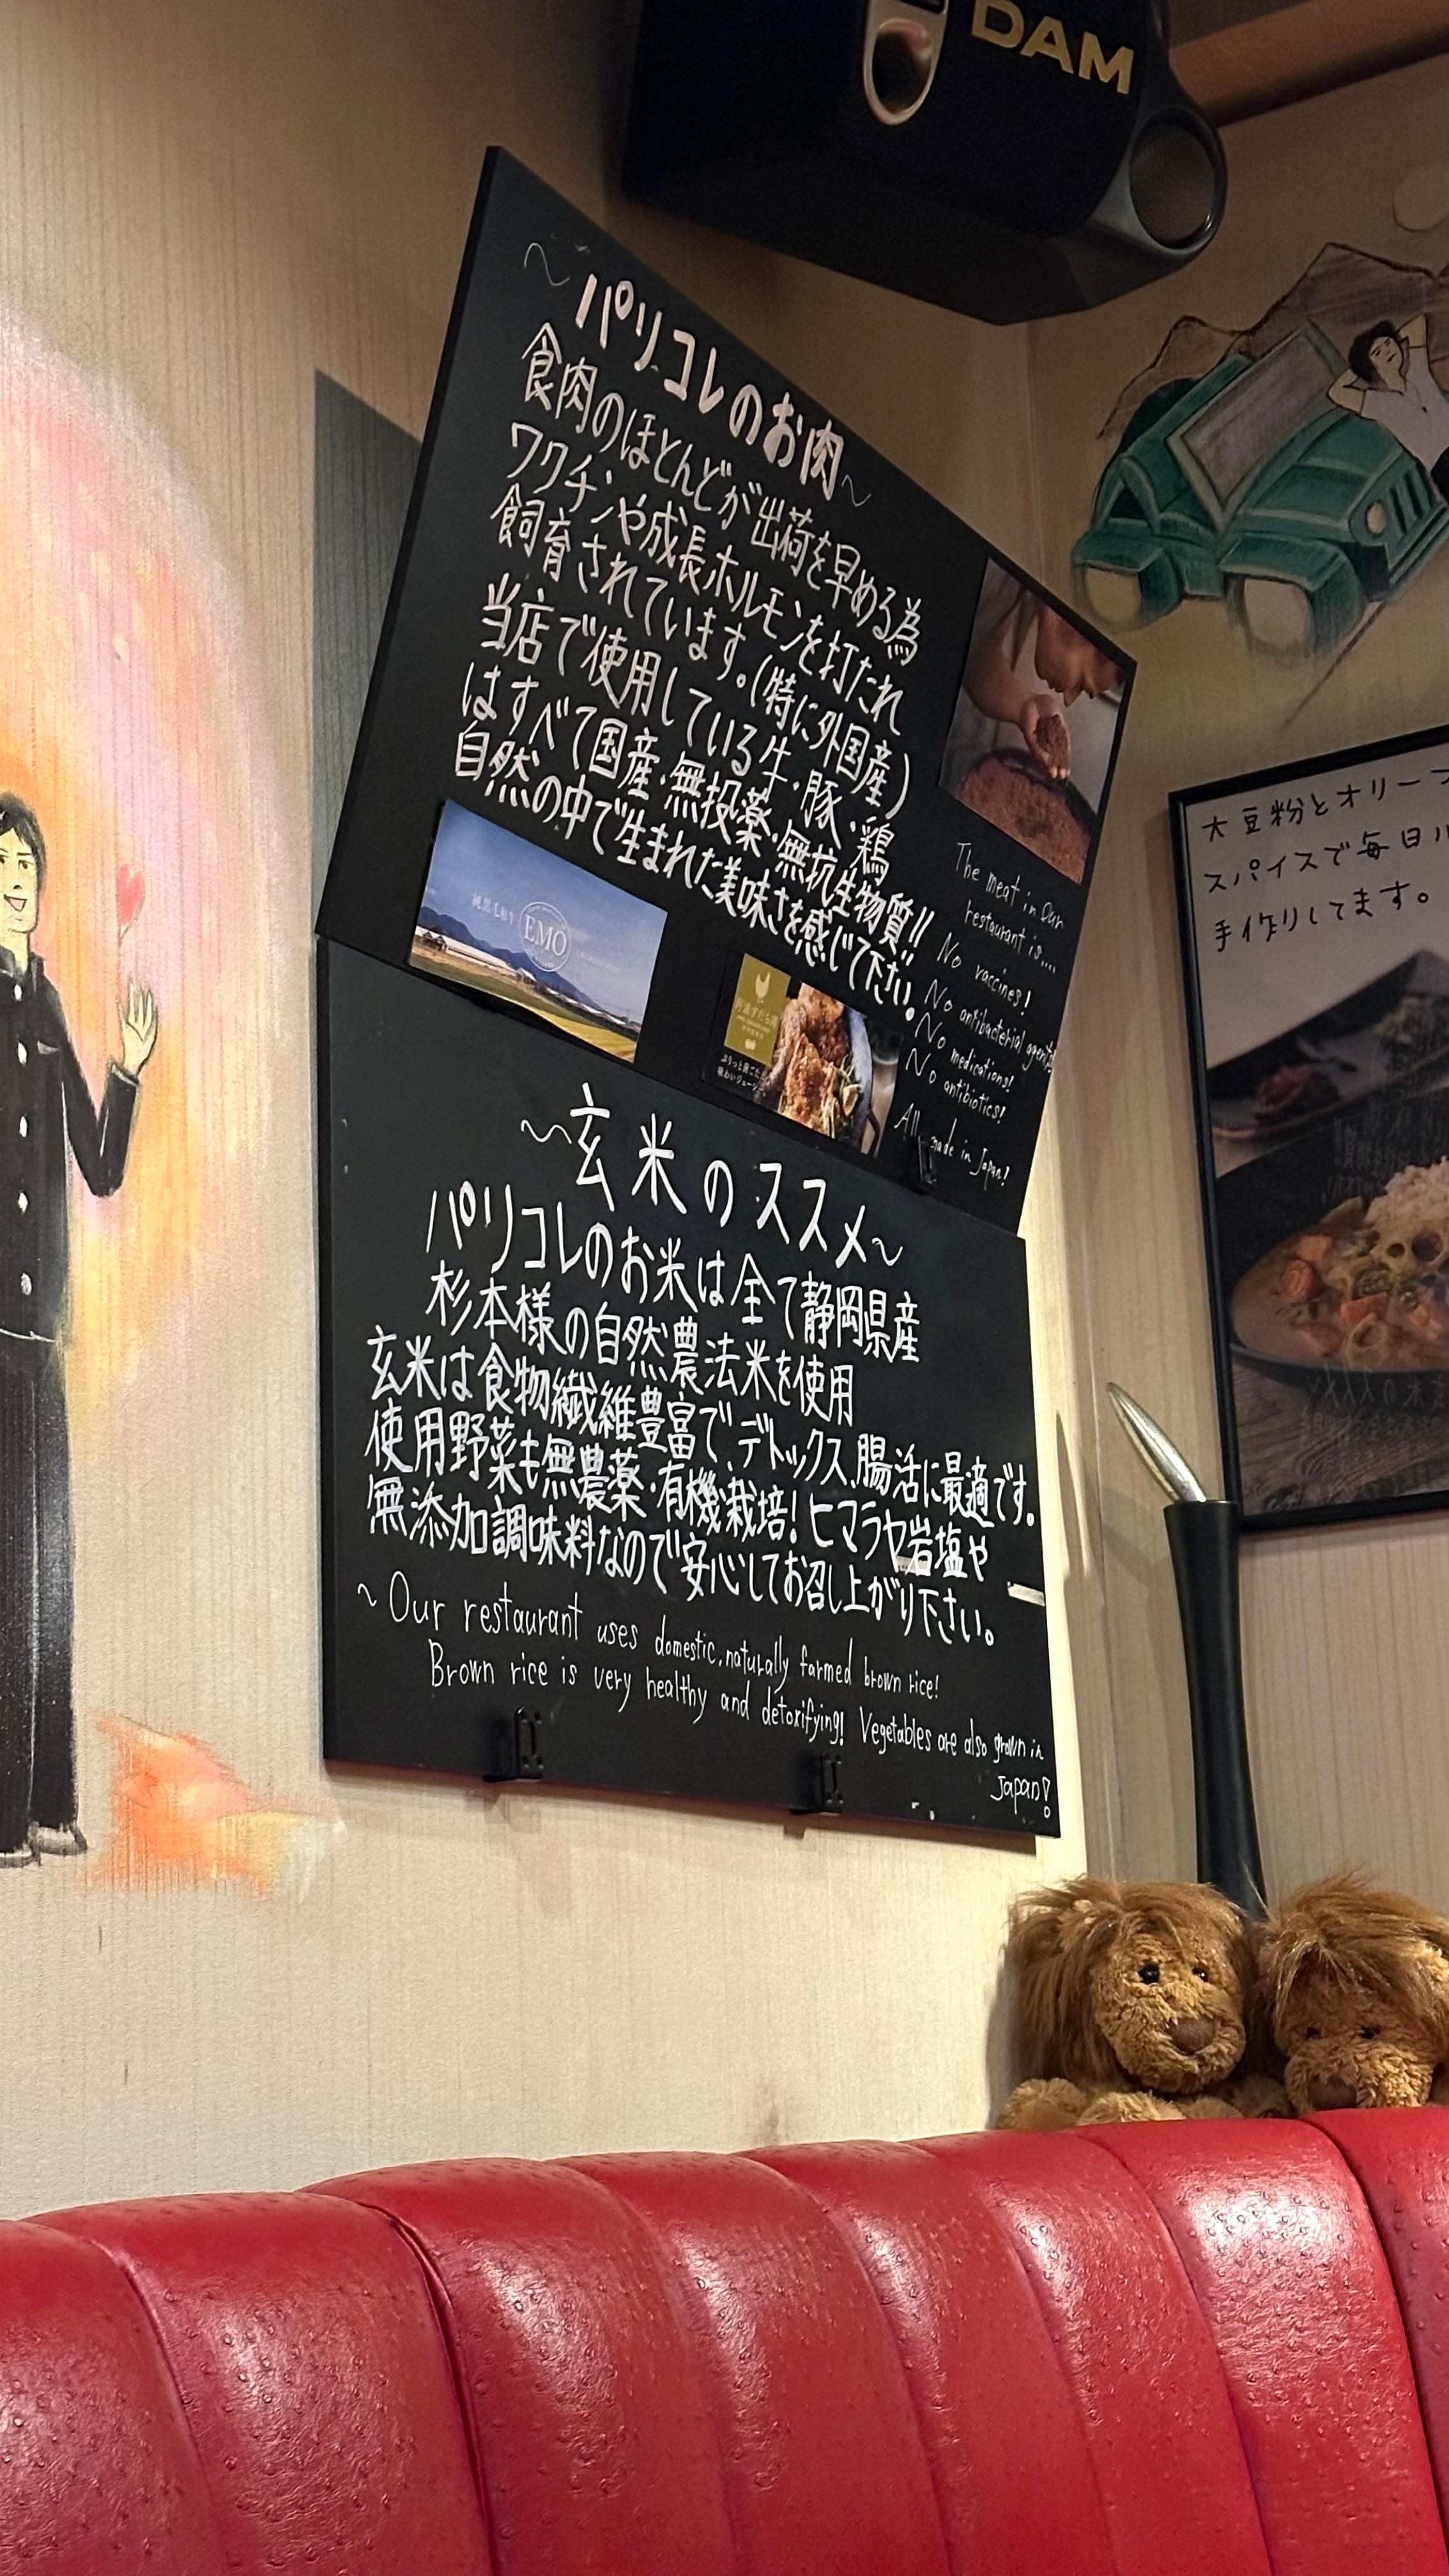 DAM
～パリコレのお肉～
食肉のほとんどが出荷を早める為
ワクチンや成長ホルモンを打たれ
飼育されています。(特に外国産)
当店で使用している牛・豚・鶏
はすべて国産・無投薬・無抗生物質!!
自然の中で生まれた美味さを感じて下さい。
純黒毛和牛
EMO
The meat in Our
restaurant is....
No vaccines!
No antibacterial agents
No medications!
No antibiotics!
All made in Japan!
～玄米のススメ～
パリコレのお米は全て静岡県産
杉本様の自然農法米を使用
玄米は食物繊維豊富で、デトックス、腸活に最適です。
使用野菜も無農薬・有機栽培!ヒマラヤ岩塩や
無添加調味料なので安心してお召し上がり下さい。
～Our restaurant uses domestic, naturally farmed brown rice!
Brown rice is very healthy and detoxifying! Vegetables are also grown in
Japan!
大豆粉とオリーブ
スパイスで毎日
手作りしてます。